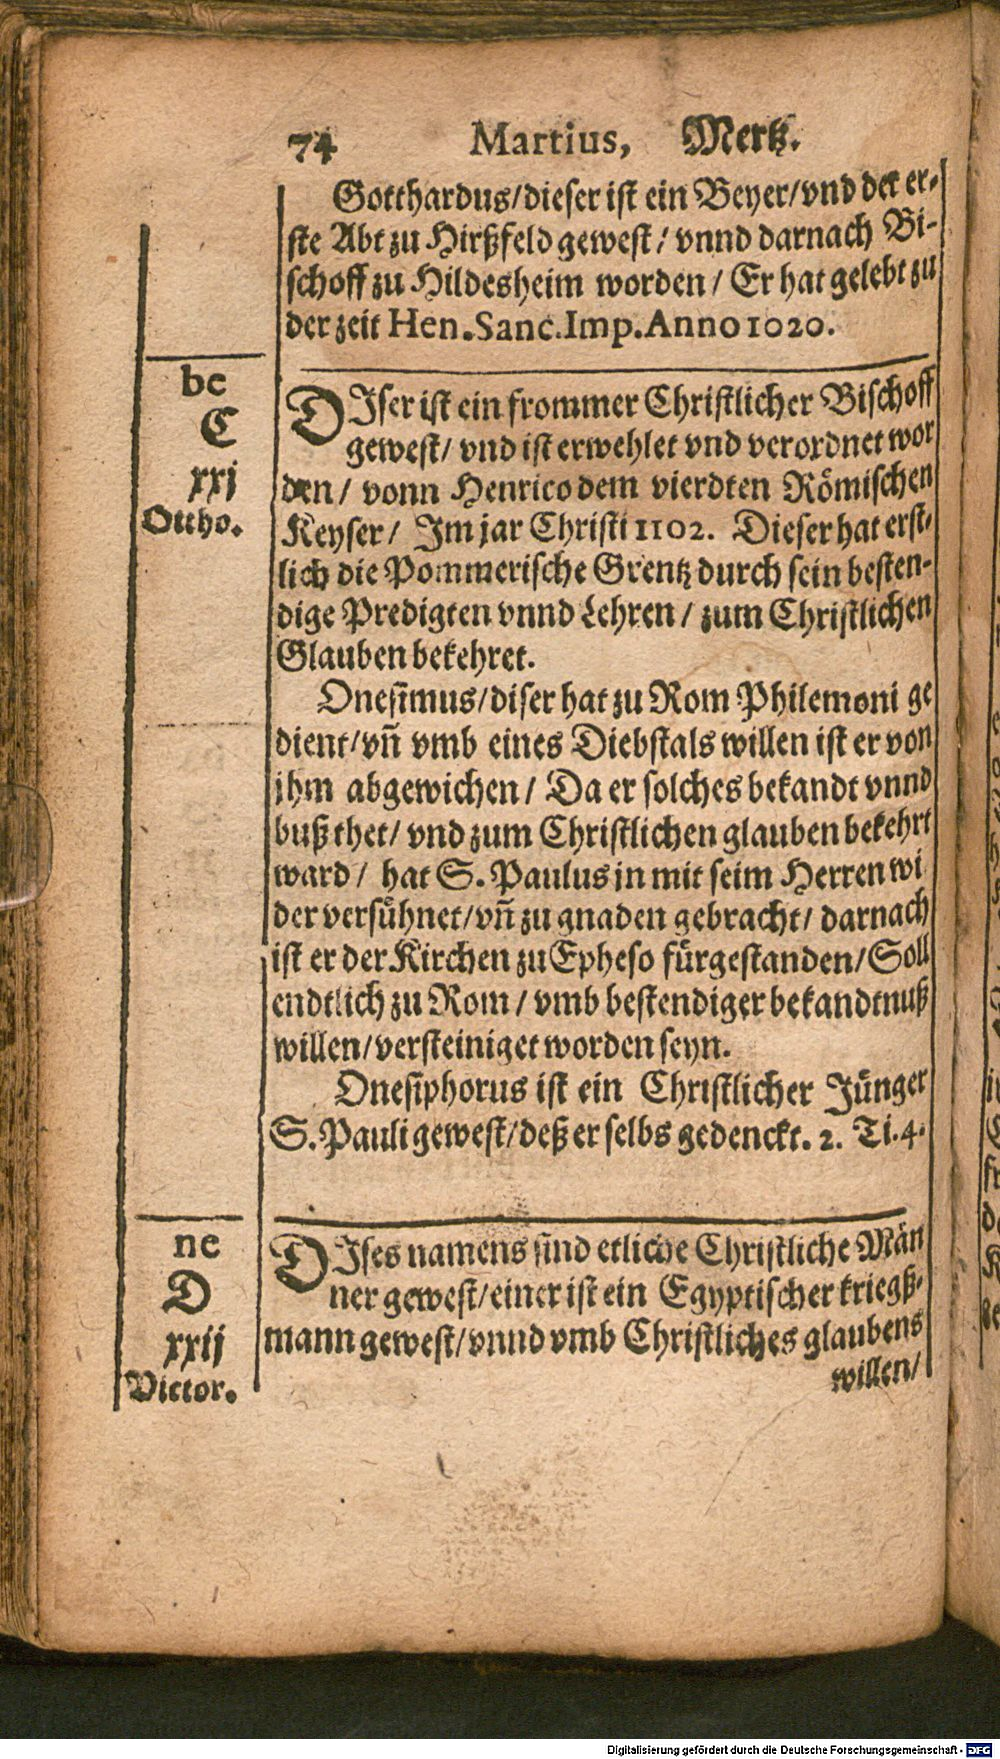 74 Martius, Mertz.
Gotthardus/dieser ist ein Beyer/vnd der er-
ste Abt zu Hirßfeld gewest/ vnnd darnach Bi-
schoff zu Hildesheim worden/ Er hat gelebt zu
der zeit Hen. Sanc. Imp. Anno 1020.
be
C
xxj
Ottho.
DIser ist ein frommer Christlicher Bischoff
gewest/ vnd ist erwehlet vnd verordnet wor
den/ vonn Henrico dem vierdten Römischen
Keyser/ Im jar Christi 1102. Dieser hat erst-
lich die Pommerische Grentz durch sein besten-
dige Predigten vnnd Lehren/ zum Christlichen
Glauben bekehret.
Onesimus/diser hat zu Rom Philemoni ge
dient/vn̄ vmb eines Diebstals willen ist er von
jhm abgewichen/ Da er solches bekandt vnnd
buß thet/ vnd zum Christlichen glauben bekehrt
ward/ hat S. Paulus jn mit seim Herren wi
der versühnet/vn̄ zu gnaden gebracht/ darnach
ist er der Kirchen zu Epheso fürgestanden/Soll
endtlich zu Rom/ vmb bestendiger bekandtnuß
willen/versteiniget worden seyn.
Onesiphorus ist ein Christlicher Jünger
S. Pauli gewest/deß er selbs gedenckt. 2. Ti. 4.
ne
D
xxij
Victor.
DIses namens sind etliche Christliche Män
ner gewest/einer ist ein Egyptischer kriegß-
mann gewest/vnnd vmb Christliches glaubens
willen/
Digitalisierung gefördert durch die Deutsche Forschungsgemeinschaft - DFG